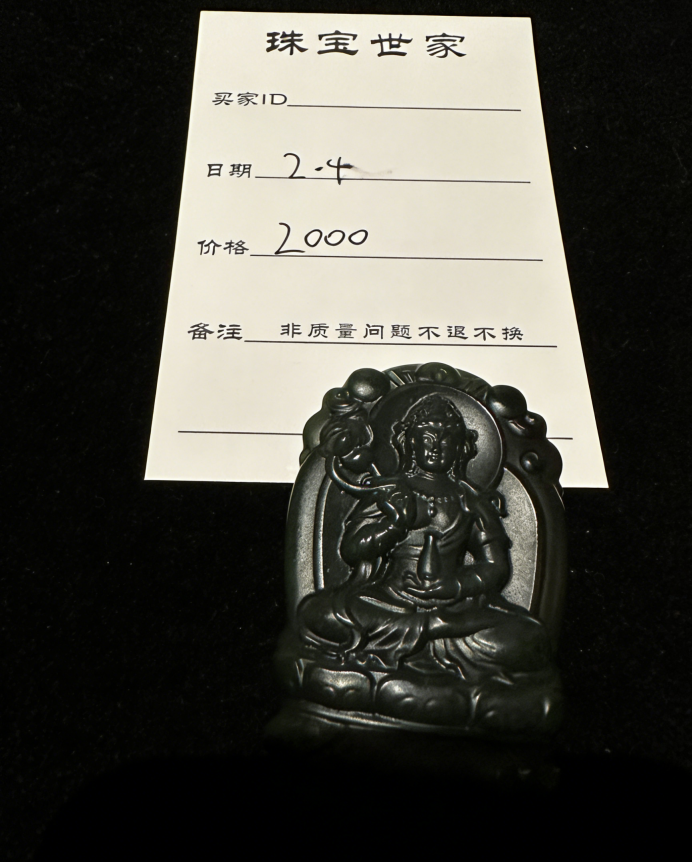 珠宝世家
买家ID
日期 2.4
价格 2000
备注 非质量问题不退不换